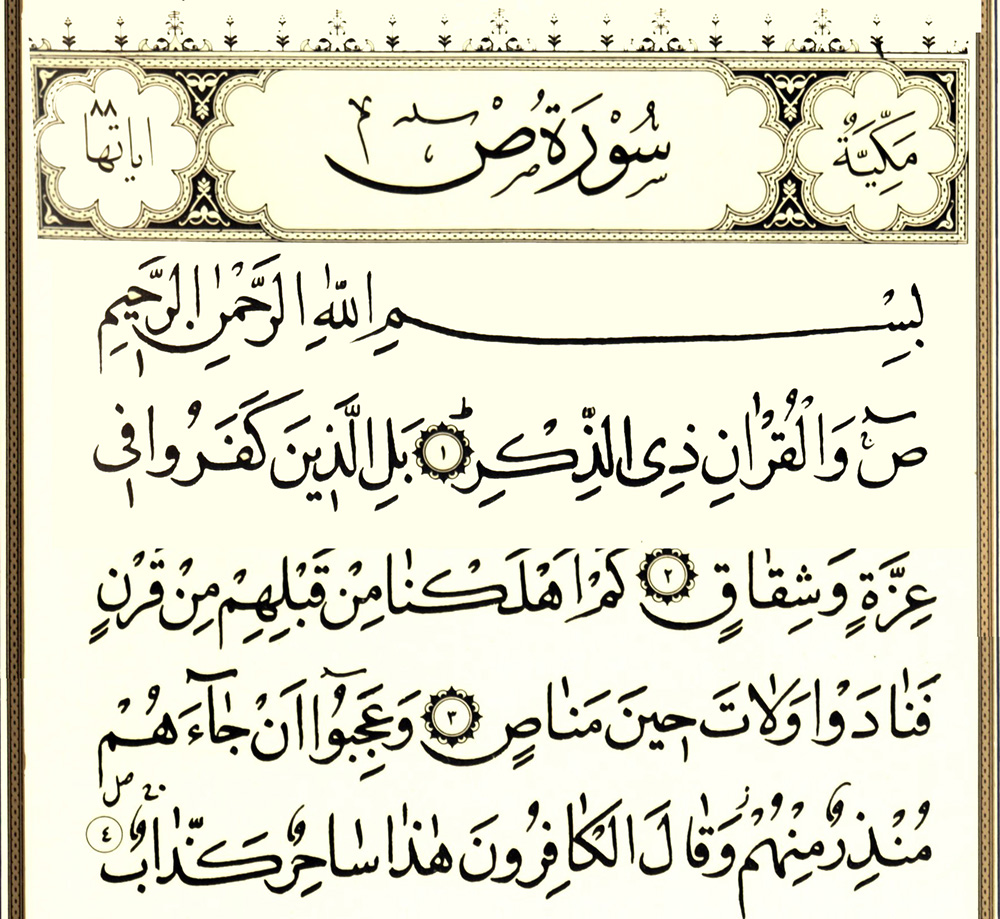 مَكِّيَّةٌ سُورَةُ صۤ اياتها ٨٨
بِسْمِ اللّٰهِ الرَّحْمٰنِ الرَّحِيمِ
صۤ وَالْقُرْاٰنِ ذِى الذِّكْرِ ١ بَلِ الَّذِينَ كَفَرُوا فِى
عِزَّةٍ وَشِقَاقٍ ٢ كَمْ اَهْلَكْنَا مِنْ قَبْلِهِمْ مِنْ قَرْنٍ
فَنَادَوْا وَلَاتَ حِينَ مَنَاصٍ ٣ وَعَجِبُٓوا اَنْ جَٓاءَهُمْ
مُنْذِرٌ مِنْهُمْ وَقَالَ الْكَافِرُونَ هٰذَا سَاحِرٌ كَذَّابٌ ٤